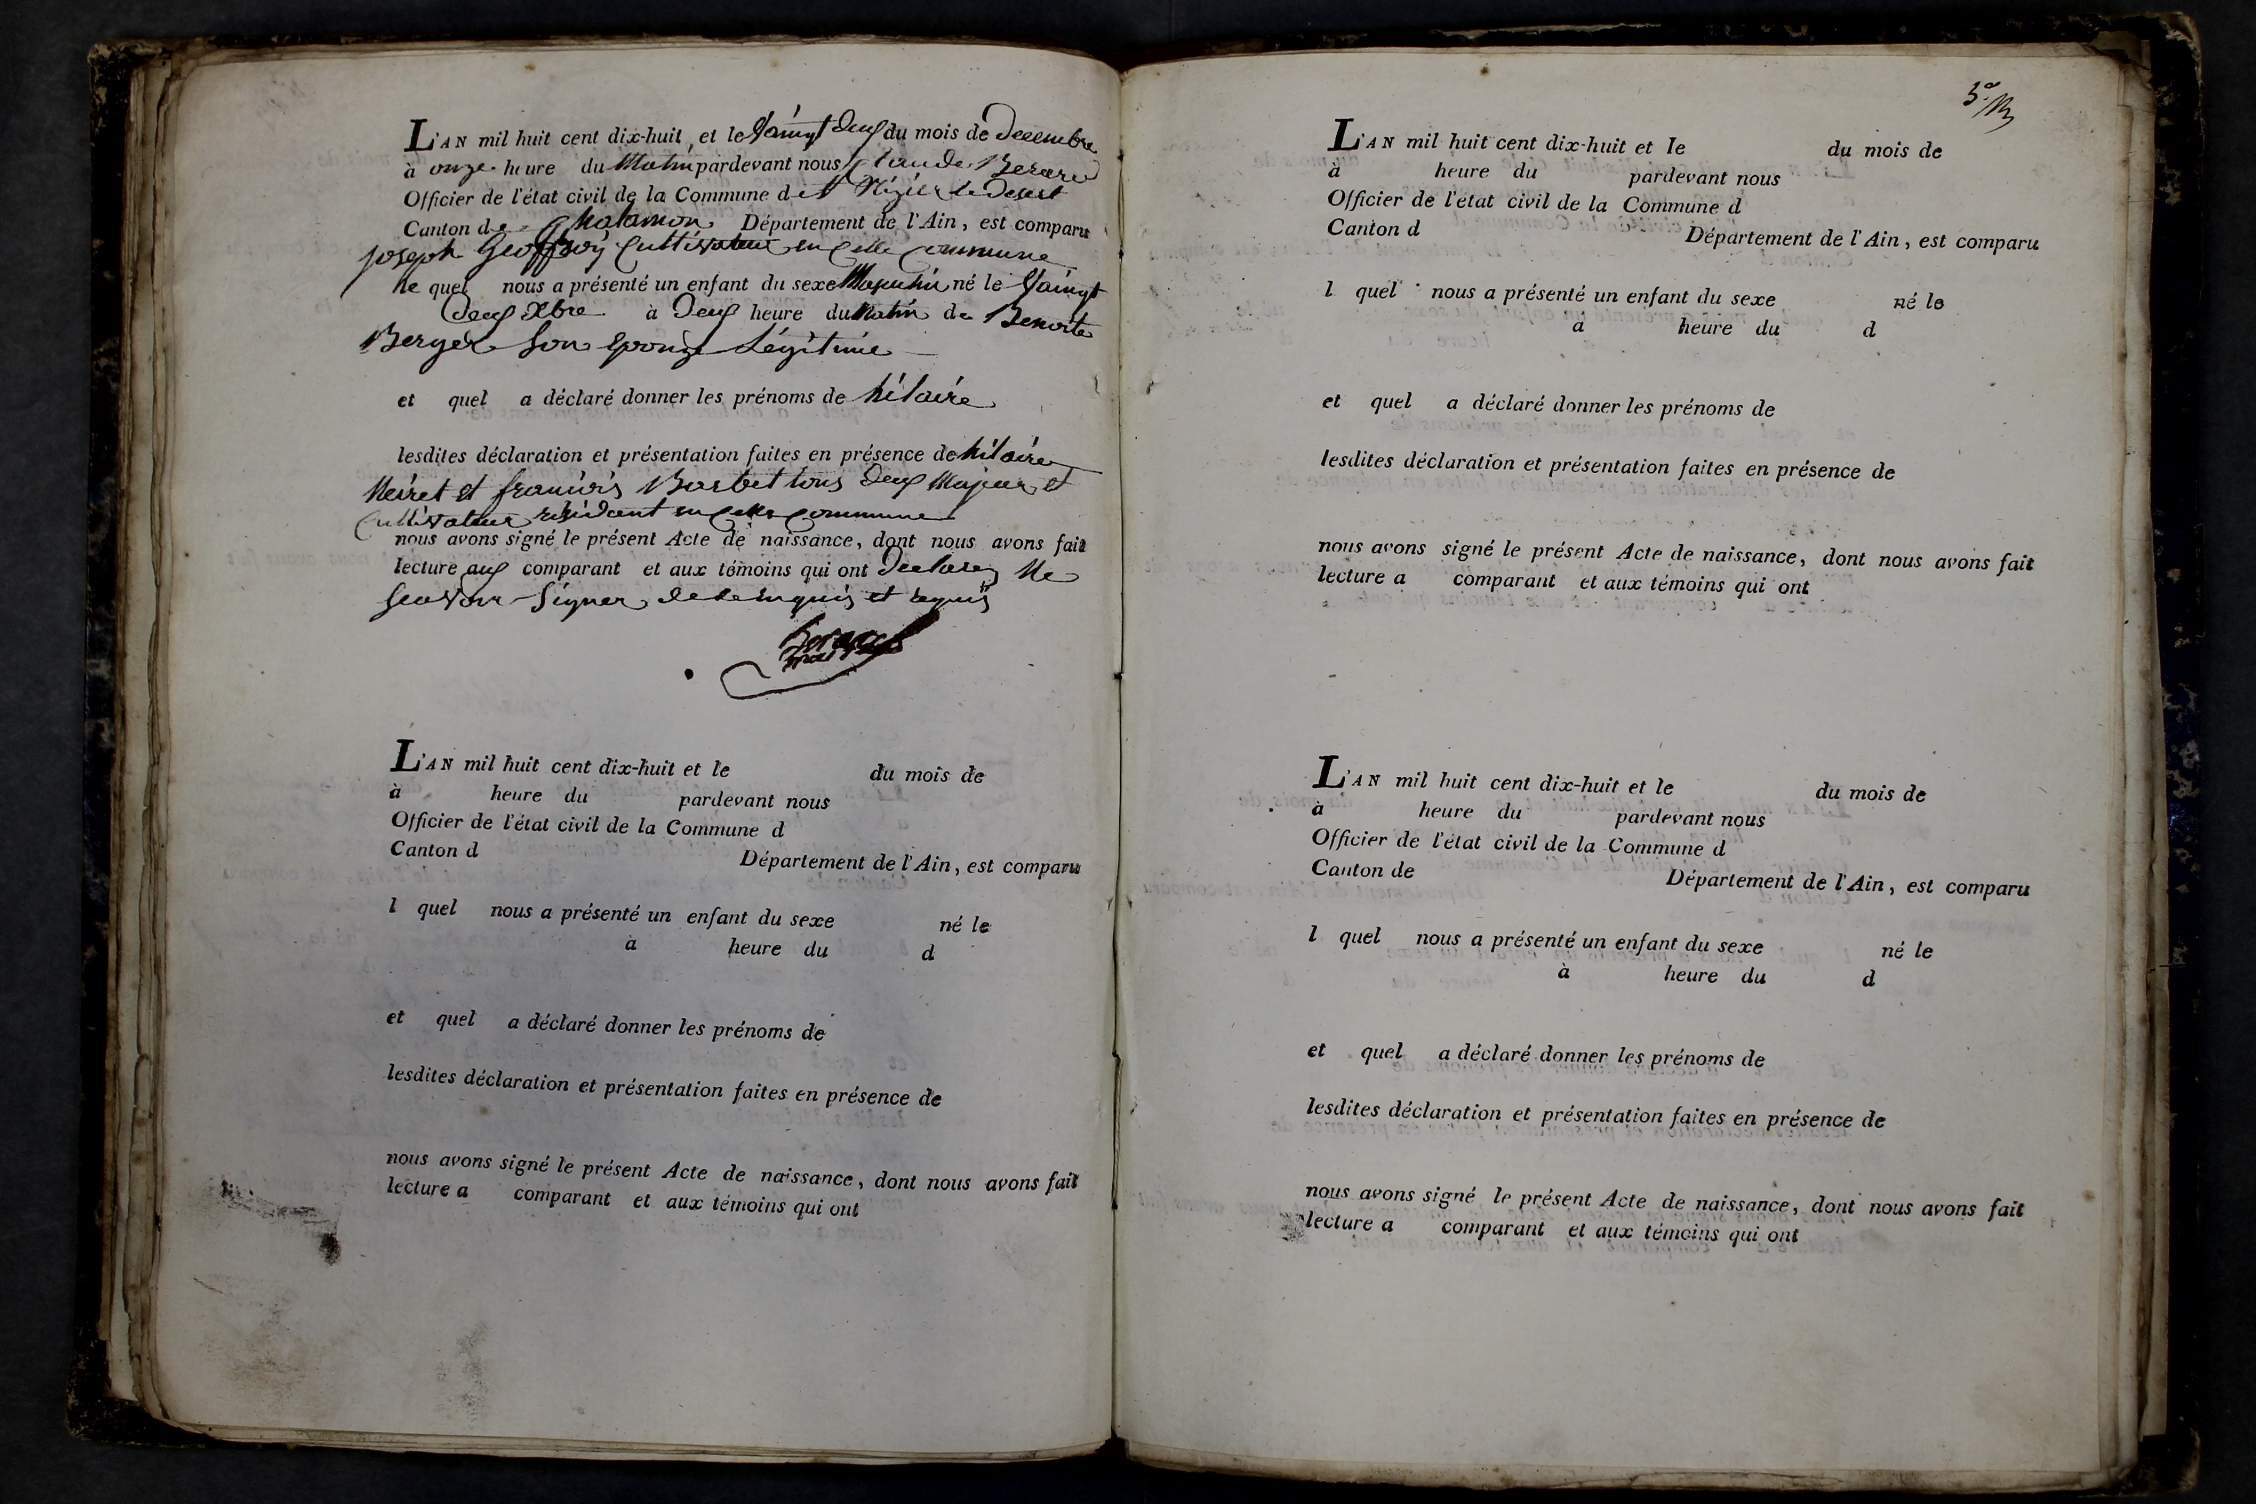 L'AN mil huit cent dix-huit, et le Vaingt deux du mois de decembre
à onze heure du Matin pardevant nous Claude Berard
Officier de l'état civil de la Commune de St Nizier le desert
Canton de Chalamon Département de l'Ain, est comparu
joseph Geoffroÿ Cultivateur en Celle Commune
le quel nous a présenté un enfant du sexe Masculin né le Vaingt
deux Xbre à deux heure du Matin de Benoite
Berger Son epouze Légitime
et quel a déclaré donner les prénoms de hilaire
lesdites déclaration et présentation faites en présence de hilaire
Neiret et franciois Barbet tous deux Majeur et
Cultivateur résidant en Celle Commune
nous avons signé le présent Acte de naissance, dont nous avons fait
lecture aux comparant et aux témoins qui ont declarez Ne
Scavoir Signer de ce enquis et requis
L'AN mil huit cent dix-huit et le du mois de
à heure du pardevant nous
Officier de l'état civil de la Commune d
Canton d Département de l'Ain, est comparu
l quel nous a présenté un enfant du sexe né le
à heure du d
et quel a déclaré donner les prénoms de
lesdites déclaration et présentation faites en présence de
nous avons signé le présent Acte de naissance, dont nous avons fait
lecture a comparant et aux témoins qui ont
L'AN mil huit cent dix-huit et le du mois de
à heure du pardevant nous
Officier de l'état civil de la Commune d
Canton d Département de l'Ain, est comparu
l quel nous a présenté un enfant du sexe né le
à heure du d
et quel a déclaré donner les prénoms de
lesdites déclaration et présentation faites en présence de
nous avons signé le présent Acte de naissance, dont nous avons fait
lecture a comparant et aux témoins qui ont
L'AN mil huit cent dix-huit et le du mois de
à heure du pardevant nous
Officier de l'état civil de la Commune d
Canton de Département de l'Ain, est comparu
l quel nous a présenté un enfant du sexe né le
à heure du d
et quel a déclaré donner les prénoms de
lesdites déclaration et présentation faites en présence de
nous avons signé le présent Acte de naissance, dont nous avons fait
lecture a comparant et aux témoins qui ont